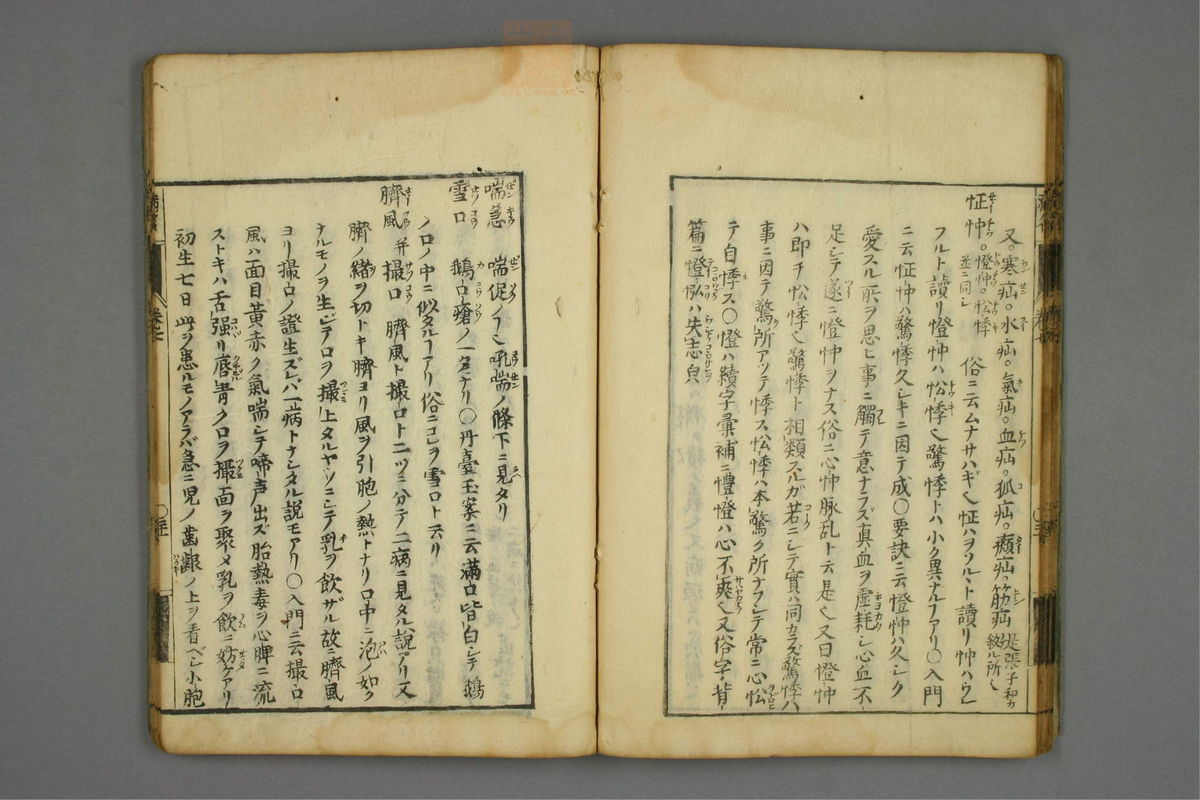 又。寒疝。水疝。氣疝。血疝。狐疝。㿗疝。筋疝 是張子和カ敘ル所ヿ
怔忡。憕忡。忪悸 並ニ同シ 俗ニ云ムナサハギヿ怔ハヲソルヽト讀リ忡ハウレ
フルト讀リ憕忡ハ忪悸ヿ驚悸トハ小ク異ナルヿアリ〇入門
ニ云怔忡ハ驚悸久シキニ因テ成〇要訣ニ云憕忡ハ久シク
愛スル所ヲ思ヒ事ニ觸テ意ナラズ真血ヲ虚耗シ心血不
足シテ遂ニ憕忡ヲナス俗ニ心忡脉乱ト云是ヿ又曰憕忡
ハ即チ忪悸ヿ驚悸ト相類スルガ若ニシテ實ハ同カラズ驚悸ハ
事ニ因テ驚所アツテ悸ス忪悸ハ本驚ク所ナフシテ常ニ心忪
テ自悸ス〇憕ハ續字彙補ニ懵憕ハ心不爽ヿ又俗字ノ背
篇ニ憕㣼ハ失志皃
喘急 喘促ノヿヿ吼喘ノ條下ニ見タリ
雪口 鵝口瘡ノ一名ナリ〇丹臺玉案ニ云滿口皆白シテ鵝
ノ口ノ中ニ似タルヿアリ俗ニコレヲ雪口ト云リ
臍風 并撮口 臍風ト撮口ト二ツニ分テ二病ニ見タル説アリ又
臍ノ緒ヲ切トキ臍ヨリ風ヲ引胞ノ熱トナリ口中ニ泡ノ如ク
ナルモノヲ生ジテ口ヲ撮上タルヤウニシテ乳ヲ飲ザル故ニ臍風
ヨリ撮口ノ證生ズレバ一病トナシタル説モアリ〇入門ニ云撮口
風ハ面目黄赤ク氣喘シテ啼声出ズ胎熱毒ヲ心脾ニ流
ストキハ舌强リ唇青ク口ヲ撮面ヲ聚メ乳ヲ飲ニ妨ゲアリ
初生七日此ヲ患ルモノアラバ急ニ児ノ歯齦ノ上ヲ看ベシ小胞